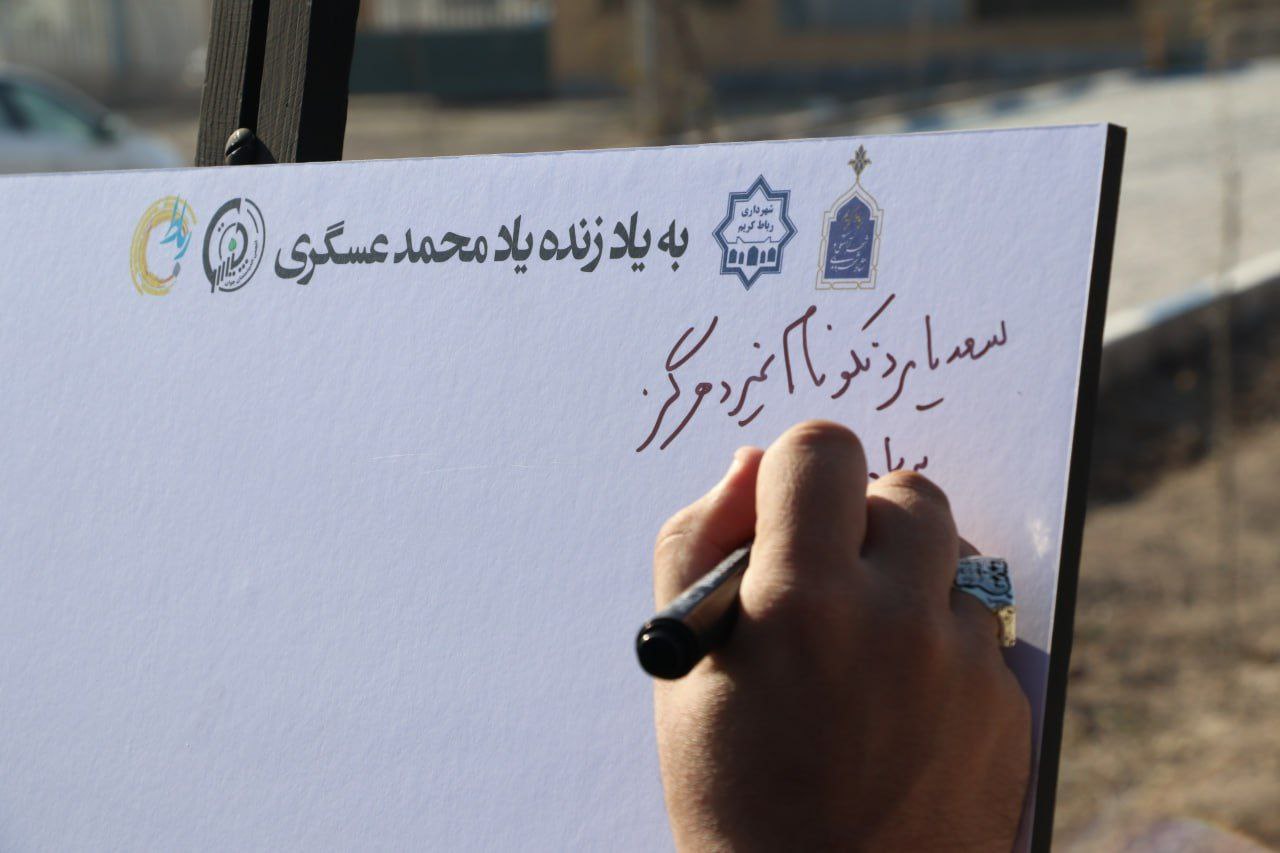 شهرداری
رباط کریم
به یاد زنده یاد محمد عسگری
سعدیا مرد نکونام نمیرد هرگز
به یاد